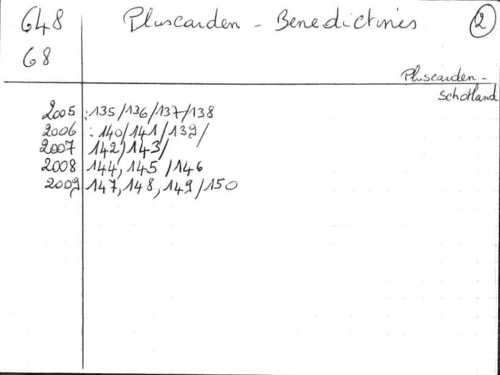 648 Pluscarden - Benedictines 2
68
Pluscarden -
Schotland
2005 :135/136/137/138
2006 :140/141/139/
2007 142/143/
2008 144, 145 /146
2009 147, 148, 149/150